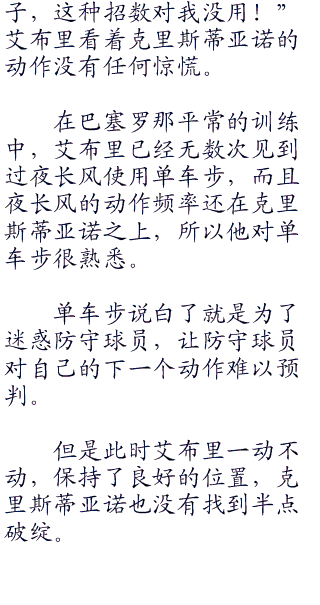 子，这种招数对我没用！”
艾布里看着克里斯蒂亚诺的
动作没有任何惊慌。
在巴塞罗那平常的训练
中，艾布里已经无数次见到
过夜长风使用单车步，而且
夜长风的动作频率还在克里
斯蒂亚诺之上，所以他对单
车步很熟悉。
单车步说白了就是为了
迷惑防守球员，让防守球员
对自己的下一个动作难以预
判。
但是此时艾布里一动不
动，保持了良好的位置，克
里斯蒂亚诺也没有找到半点
破绽。